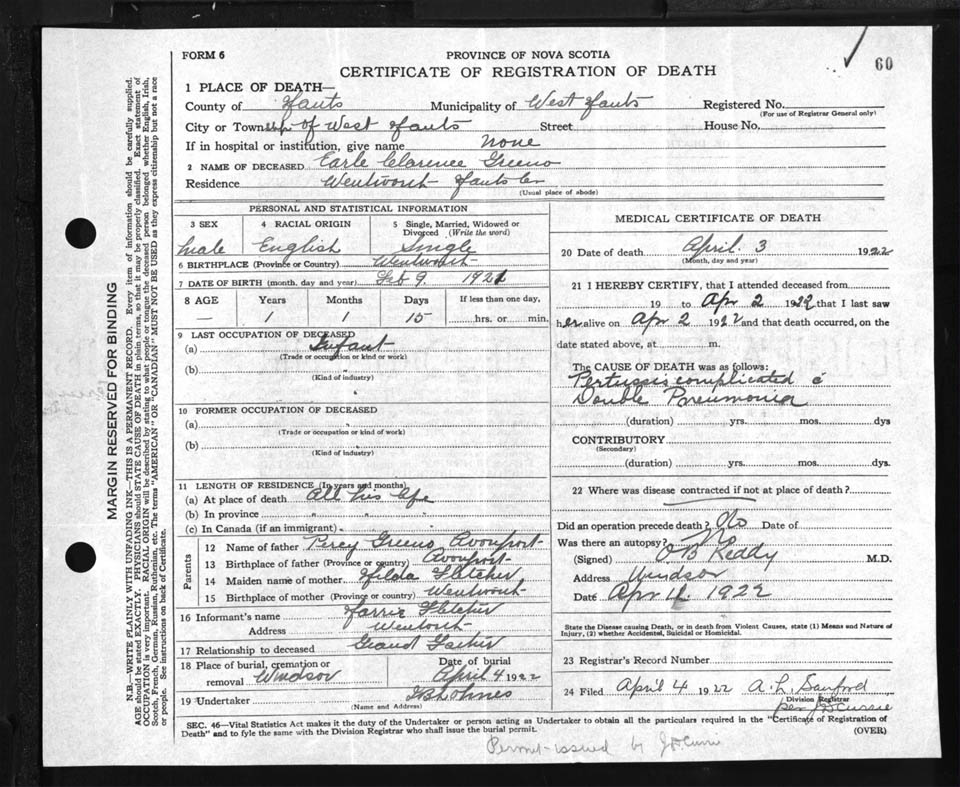 60
FORM 6
PROVINCE OF NOVA SCOTIA
CERTIFICATE OF REGISTRATION OF DEATH
MARGIN RESERVED FOR BINDING
N.B.—WRITE PLAINLY WITH UNFADING INK—THIS IS A PERMANENT RECORD. Every item of information should be carefully supplied.
AGE should be stated EXACTLY. PHYSICIANS should STATE CAUSE OF DEATH in plain terms, so that it may be properly classified. Exact statement of
OCCUPATION is very important. RACIAL ORIGIN will be described by stating to what people or tongue the deceased person belonged whether English, Irish,
Scotch, French, German, Russian, Ruthenian, etc. The terms "AMERICAN" OR "CANADIAN" MUST NOT BE USED as they express citizenship but not a race
or people. See instructions on back of Certificate.
1 PLACE OF DEATH—
County of Hants Municipality of West Hants Registered No.
(For use of Registrar General only)
City or Township of West Hants Street House No.
If in hospital or institution, give name None
2 NAME OF DECEASED Earle Clarence Greeno
Residence Wentworth Hants Co
(Usual place of abode)
PERSONAL AND STATISTICAL INFORMATION
3 SEX 4 RACIAL ORIGIN 5 Single, Married, Widowed or
Divorced (Write the word)
Male English Single
6 BIRTHPLACE (Province or Country) Wentworth
7 DATE OF BIRTH (month, day and year) Feb 9, 1921
8 AGE Years Months Days If less than one day,
— 1 1 15 hrs. or min.
9 LAST OCCUPATION OF DECEASED
(a) Infant
(Trade or occupation or kind or work)
(b)
(Kind of industry)
10 FORMER OCCUPATION OF DECEASED
(a)
(Trade or occupation or kind or work)
(b)
(Kind of industry)
11 LENGTH OF RESIDENCE (In years and months)
(a) At place of death All his life
(b) In province " " "
(c) In Canada (if an immigrant)
Parents
12 Name of father Percy Greeno Avonport
13 Birthplace of father (Province or country) Avonport
14 Maiden name of mother Hilda Fletcher
15 Birthplace of mother (Province or country) Wentworth
16 Informant's name Harris Fletcher
Address Wentworth
17 Relationship to deceased Grand Father
18 Place of burial, cremation or Date of burial
removal Windsor April 4 1922
19 Undertaker
(Name and Address)
MEDICAL CERTIFICATE OF DEATH
20 Date of death April 3 1922
(Month, day and year)
21 I HEREBY CERTIFY, that I attended deceased from
19 to Apr 2 1922 that I last saw
her alive on Apr 2 1922 and that death occurred, on the
date stated above, at m.
The CAUSE OF DEATH was as follows:
Pertussis complicated c̄
Double Pneumonia
(duration) yrs. mos. dys
CONTRIBUTORY
(Secondary)
(duration) yrs. mos. dys.
22 Where was disease contracted if not at place of death?
Did an operation precede death? No Date of
Was there an autopsy? No
(Signed) O B Keddy M.D.
Address Windsor
Date Apr 4 1922
State the Disease causing Death, or in death from Violent Causes, state (1) Means and Nature of
Injury, (2) whether Accidental, Suicidal or Homicidal.
23 Registrar's Record Number
24 Filed April 4 1922 A. L. Sanford
Division Registrar
per J D Currie
SEC. 46—Vital Statistics Act makes it the duty of the Undertaker or person acting as Undertaker to obtain all the particulars required in the "Certificate of Registration of
Death" and to fyle the same with the Division Registrar who shall issue the burial permit. (OVER)
Permit issued by J D Currie